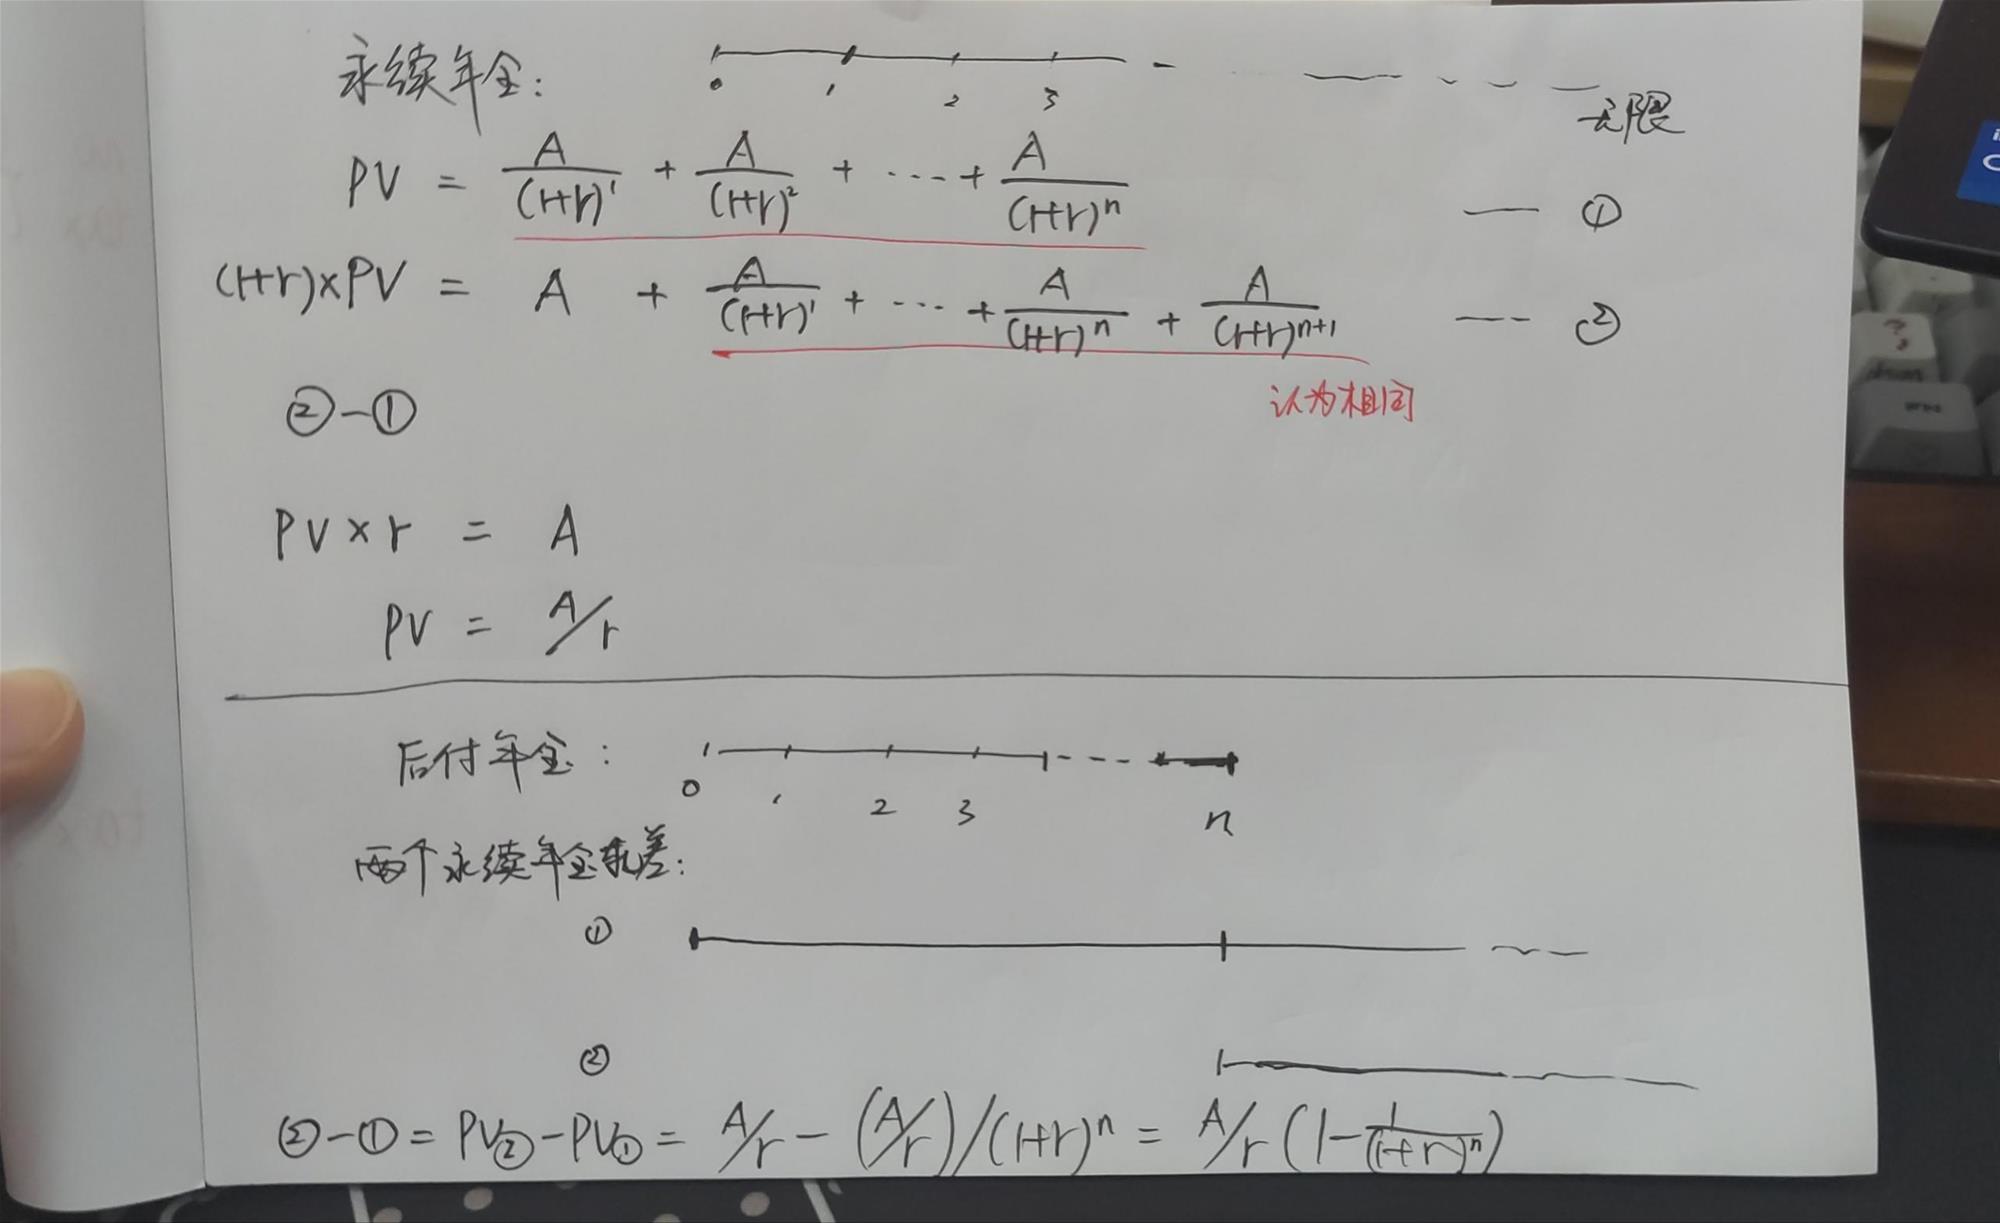 永续年金:
0 1 2 3 无限
PV = A/(1+r)^1 + A/(1+r)^2 + ... + A/(1+r)^n — ①
(1+r)×PV = A + A/(1+r)^1 + ... + A/(1+r)^n + A/(1+r)^{n+1} --- ②
认为相同
②-①
PV×r = A
PV = A/r
后付年金:
0 1 2 3 n
两个永续年金求差:
①
②
②-①=PV②-PV①= A/r - (A/r)/(1+r)^n = A/r (1-1/(1+r)^n)